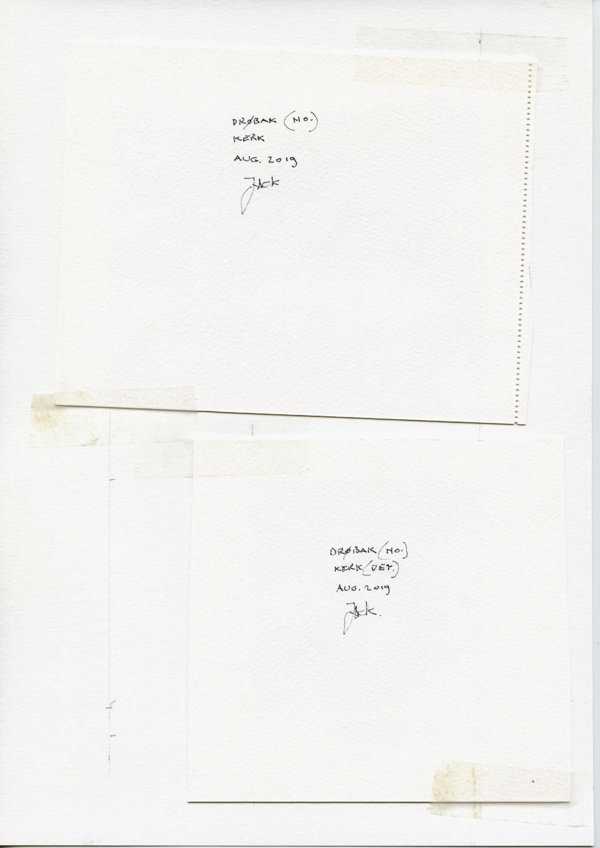 DRØBAK (NO.)
KERK
AUG. 2019
Jack
DRØBAK (NO.)
KERK (DET.)
AUG. 2019
Jack.